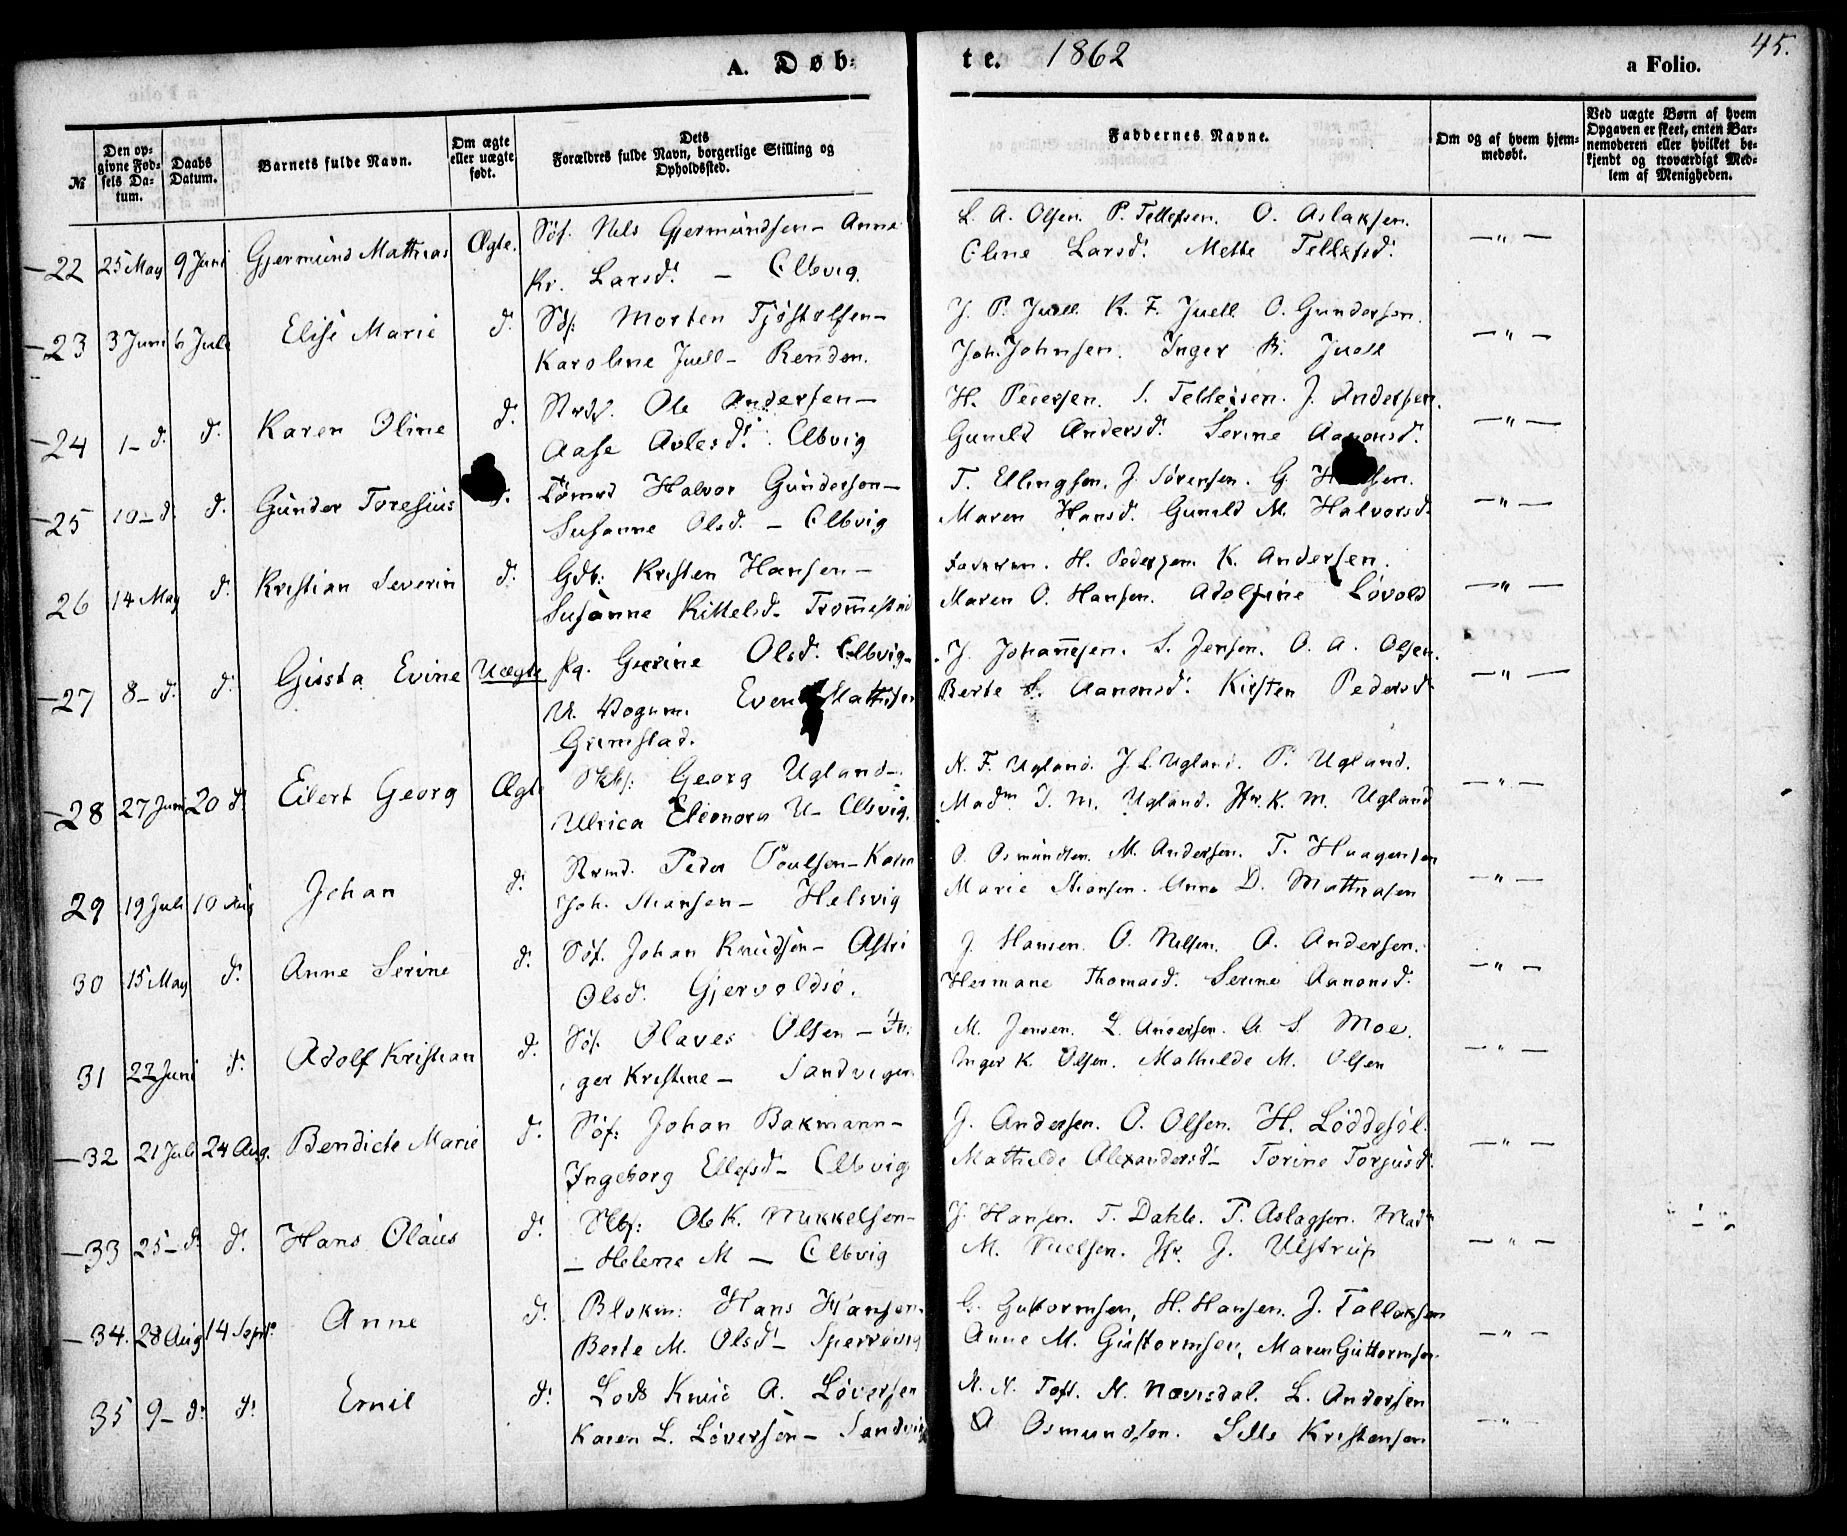 A. Døb-
te. 1862
a Folio.
45.
№
Den op-
givne Fød-
sels Da-
tum.
Daabs
Datum.
Barnets fulde Navn.
Om ægte
eller uægte
født.
Dets
Forældres fulde Navn, borgerlige Stilling og
Opholdssted.
Faddernes Navne.
Om og af hvem hjem-
medøbt.
Ved uægte Børn af hvem
Opgaven er skeet, enten Bar-
nemoderen eller hvilket be-
kjendt og troværdigt Med-
lem af Menigheden.
22 25 May 9 Juni Gjermund Mathias Ægte. Søf. Nels Gjermundsen – Anne L. A. Olsen. P. Tellefsen. O. Aslaksen. — " —
Kr. Larsd. – Elbvig. Eline Larsd. Mette Tellefsd.
23 3 Juni 6 Juli Elise Marie d. Søf. Morten Tjøstolfsen – J. P. Juell. K. F. Juell O. Gundersen. — " —
Karoline Juell – Renden. Joh. Johnsen. Inger B. Juell
24 1 – d. d. Karen Oline d. Ole Andersen – H. Pedersen. S. Tellefsen. J. Andersen. — " —
Aase Avlesd. Elbvig Gunild Andersd. Serine Aanonsd.
25 10 – d. d. Gunder Toresius d. Tømrd Halvor Gunderson – T. Ellingsen. J. Sørensen. G. — " —
Susanne Olsd. – Elbvig Maren Hansd. Gunild M. Halvorsd.
26 14 May d. Kristian Severin d. Gdb: Kristen Hansen – Faderen. H. Pedersen. K. Andersen. — " —
Susanne Kittelsd. Tromestad Maren O. Hansen. Adolfine Løvold
27 8 – d. d. Gusta Evine Uægte Pg. Gurine Olsd. Elbvig – J. Johannesen. S. Jensen. O. A. Olsen. — " —
U. Even Mathisen Berte S. Aanonsd. Kirsten Pedersd.
Grimstad.
28 27 Juni 20 d. Eilert Georg Ægte Skbf: Georg Ugland – N. F. Ugland. J. L. Ugland. P. Ugland. — " —
Ulrica Eleonora U – Elbvig. Madm J. M. Ugland. Jfr. K. M. Ugland
29 19 Juli 10 Aug Johan d. Strmd. Peder Poulsen – Karen O. Osmundsen. M. Andersen. T. Haagensen — " —
Joh. – Helsvig Marie Anne D. Mathiasen
30 15 May d. Anne Serine d. Søf. Johan Knudsen – Astri J. Hansen. O. Nelsen. A. Andersen. — " —
Olsd. Gjervoldsø. Hermane Thomasd. Serine Aanonsd.
31 22 Juni d. Adolf Kristian d. Søf. Olaves Olsen – In: M. Jensen. L. Andersen. A S. Moe. — " —
ger Kristine – Sandvigen Inger K. Olsen. Mathilde M. Olsen
32 21 Juli 24 Aug. Bendicte Marie d. Søf: Johan Bakmann – J. Andersen. O. Olsen. H. Løddesøl. — " —
Ingeborg Ellefsd – Elbvig Mathilde Alexandersd – Torine Torjusd.
33 25 – d. d. Hans Olaus d. Skbf: Ole K. Mikkelsen – J. Hansen. T. Dahle. T. Aslagsen. Mad — " —
– Helene M – Elbvig M. Nielsen. Jfr. J. Ulstrup
34. 28 Aug. 14 Sept. Anne d. Blokm: Hans Hansen. G. Guttormsen, H. Hansen. J. Tallaksen — " —
Berte M. Olsd – Spervvig Anne M. Guttormsen, Maren Guttormsen.
35 9 – d. d. Emil d. Lods Knud A. Løversen N. N. Toft. N. L. Andersen — " —
Karen L. Løversen – Sandvig O Osmundsen. Sille Kristensen